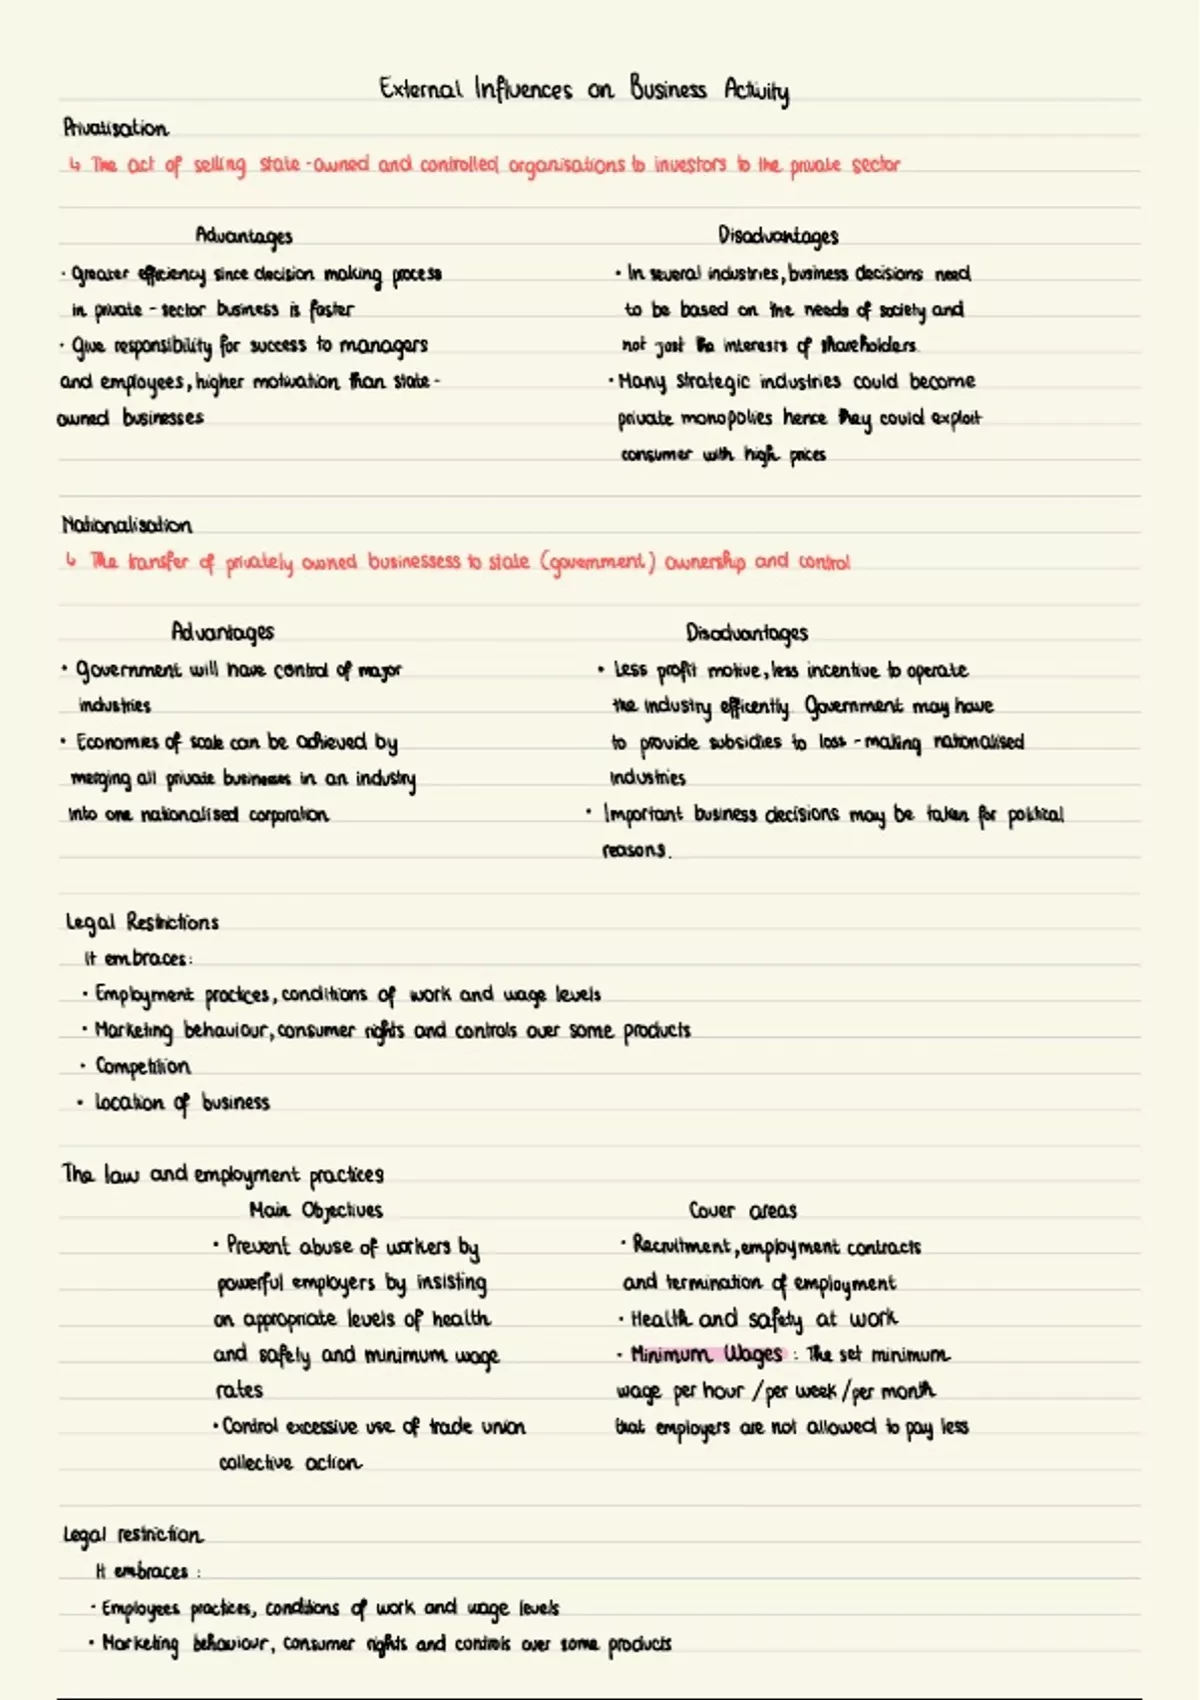 External Influences on Business Activity
Privatisation
↳ The act of selling state-owned and controlled organisations to investors to the private sector
Advantages
· Greater efficiency since decision making process
in private - sector business is faster
· Give responsibility for success to managers
and employees, higher motivation than state-
owned businesses
Disadvantages
· In several industries, business decisions need
to be based on the needs of society and
not just the interests of shareholders.
· Many strategic industries could become
private monopolies hence they could exploit
consumer with high prices
Nationalisation
↳ The transfer of privately owned businessess to state (government) ownership and control
Advantages
· Government will have control of major
industries
· Economies of scale can be achieved by
merging all private businesses in an industry
into one nationalised corporation
Disadvantages
· Less profit motive, less incentive to operate
the industry efficently. Government may have
to provide subsidies to loss-making nationalised
industries
· Important business decisions may be taken for political
reasons.
Legal Restrictions
It embraces:
· Employment practices, conditions of work and wage levels
· Marketing behaviour, consumer rights and controls over some products
· Competition
· Location of business
The law and employment practices
Main Objectives
· Prevent abuse of workers by
powerful employers by insisting
on appropriate levels of health
and safely and minimum wage
rates
· Control excessive use of trade union
collective action
Cover areas
· Recruitment, employment contracts
and termination of employment
· Health and safety at work
· Minimum Wages : The set minimum
wage per hour /per week /per month
that employers are not allowed to pay less
Legal restriction
It embraces :
· Employees practices, conditions of work and wage levels
· Marketing behaviour, consumer rights and controls over some products